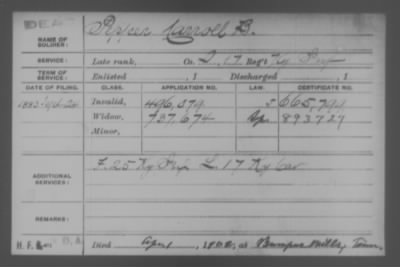 DEAD
NAME OF SOLDIER: Carroll B.
SERVICE: Late rank, Co. 17 Reg't Ky
TERM OF SERVICE: Enlisted , 1 Discharged , 1
DATE OF FILING. CLASS. APPLICATION NO. LAW. CERTIFICATE NO.
1883 Invalid, 496,079 665,794
Widow, 737,674 893727
Minor,
ADDITIONAL SERVICES: F. 25 Ky L. 17 Ky Cav
REMARKS:
Died at Bumpus Mills, Tenn